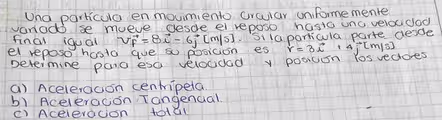 Una partícula en movimiento circular uniformemente
variado se mueve desde el reposo hasta una velocidad
final igual Vf = 8i - 6j [m/s]. Si la partícula parte desde
el reposo hasta que su posición es r = 3i + 4j [m/s]
Determine para esa velocidad y posición los vectores
a) Aceleración centrípeta
b) Aceleración Tangencial
c) Aceleración total